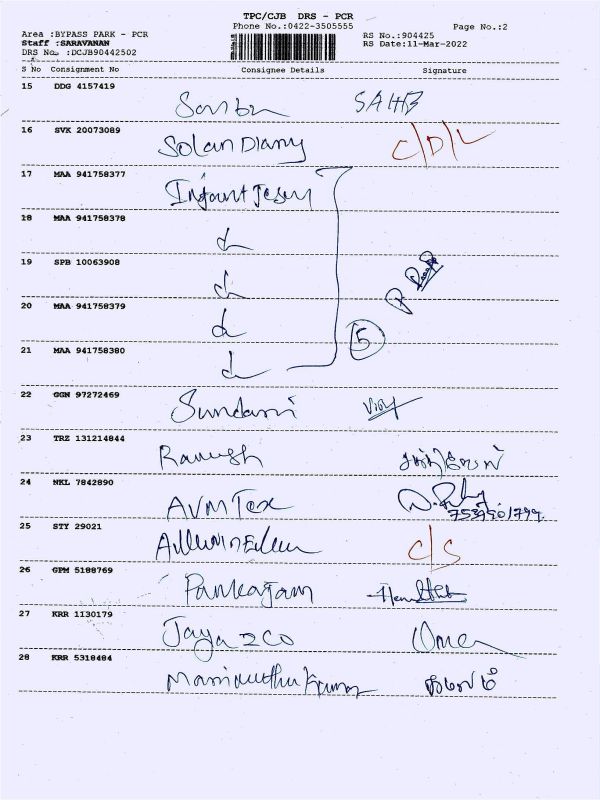 TPC/CJB DRS - PCR
Area :BYPASS PARK - PCR Phone No.:0422-3505555 Page No.:2
Staff :SARAVANAN RS No.:904425
DRS No. :DCJB90442502 RS Date:11-Mar-2022
S No Consignment No Consignee Details Signature
15 DDG 4157419
SAHB
16 SVK 20073089
Solan Diamy C/D/L
17 MAA 941758377
Infant Jesus
18 MAA 941758378
19 SPB 10063908
20 MAA 941758379
5
21 MAA 941758380
22 GGN 97272469
Sundari
23 TRZ 131214844
Ramesh
24 NKL 7842890
AVM Tex
25 STY 29021
C/S
26 GPM 5188769
Pankajam
27 KRR 1130179
Jaya & CO
28 KRR 5318484
Manimuthu Kumar